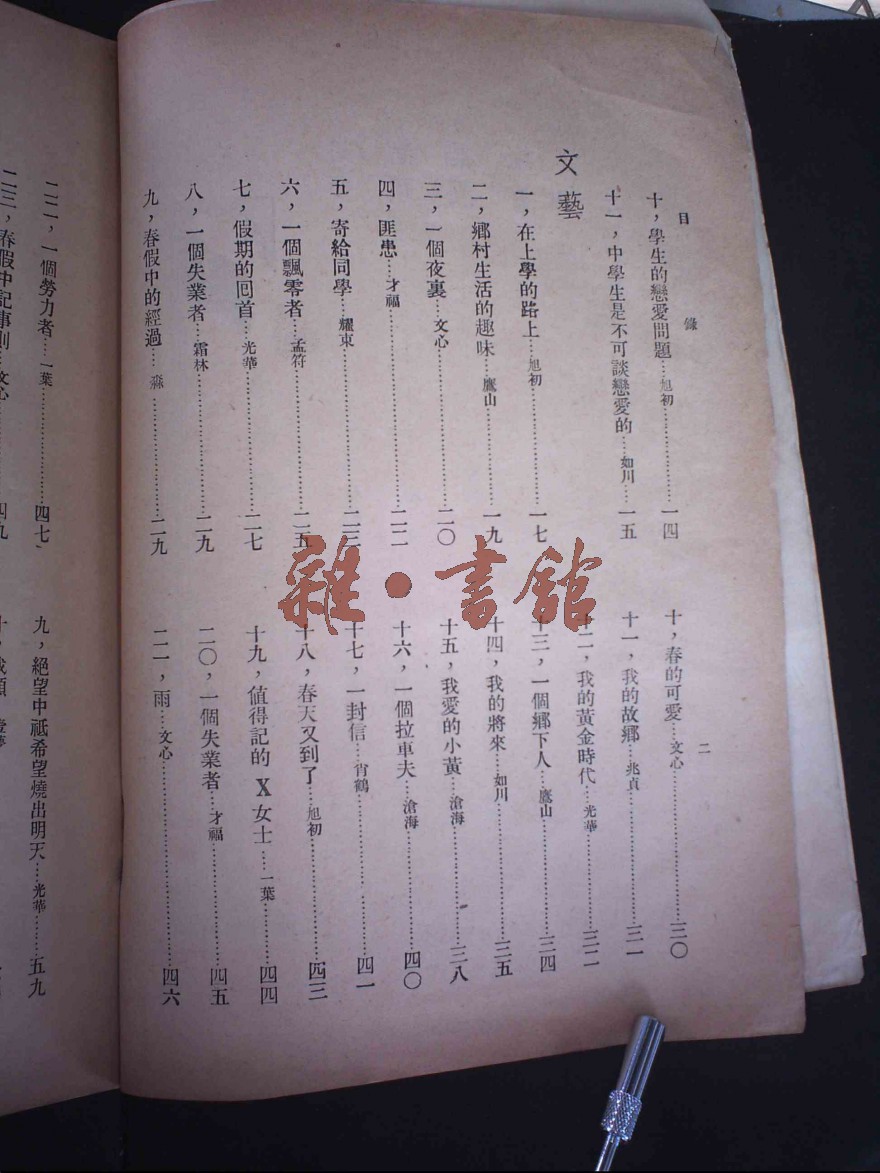 目錄
二
十，學生的戀愛問題……旭初……一四
十一，中學生是不可談戀愛的……如川……一五
文藝
一，在上學的路上……旭初……一七
二，鄉村生活的趣味……鷹山……一九
三，一個夜裏……文心……二〇
四，匪患……才福……二二
五，寄給同學……耀東……二三
六，一個飄零者……孟符……二五
七，假期的囘首……光華……二七
八，一個失業者……霜林……二九
九，春假中的經過……淼……二九
十，春的可愛……文心……三〇
十一，我的故鄉……兆貞……三一
十二，我的黃金時代……光華……三二
十三，一個鄉下人……鷹山……三四
十四，我的將來……如川……三五
十五，我愛的小黃……滄海……三八
十六，一個拉車夫……滄海……四〇
十七，一封信……肖鶴……四一
十八，春天又到了……旭初……四三
十九，值得記的X女士……一葉……四四
二〇，一個失業者……才福……四五
二一，雨……文心……四六
二二，一個勞力者……一葉……四七
二三，春假中記事則……文心……四九
九，絕望中祗希望燒出明天……光華……五九
雜·書館